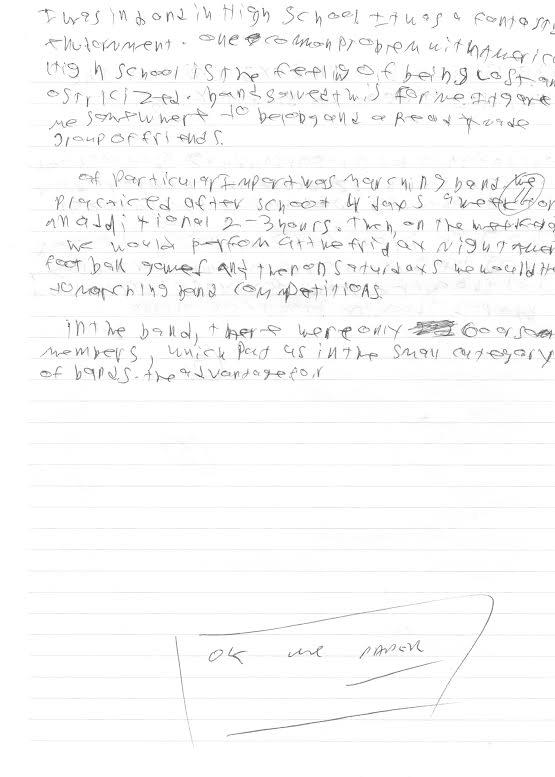 I was in band in High School It was a fantasti
enviornment. one common problem with Americ
High school is the feeling of being lost an
ostricized. band solved this for me It gave
me somewhere to belong and a Ready made
group of friends.
of particular Import was marching band. we
practiced after school 4 days a week for
an additional 2-3 hours. Then, on the
we would perform at the friday night
football games and then on saturdays we would
to marching band competitions.
in the band, there were only 60 or so
members, which put us in the small category
of bands. the advantage for
OK we PAPER